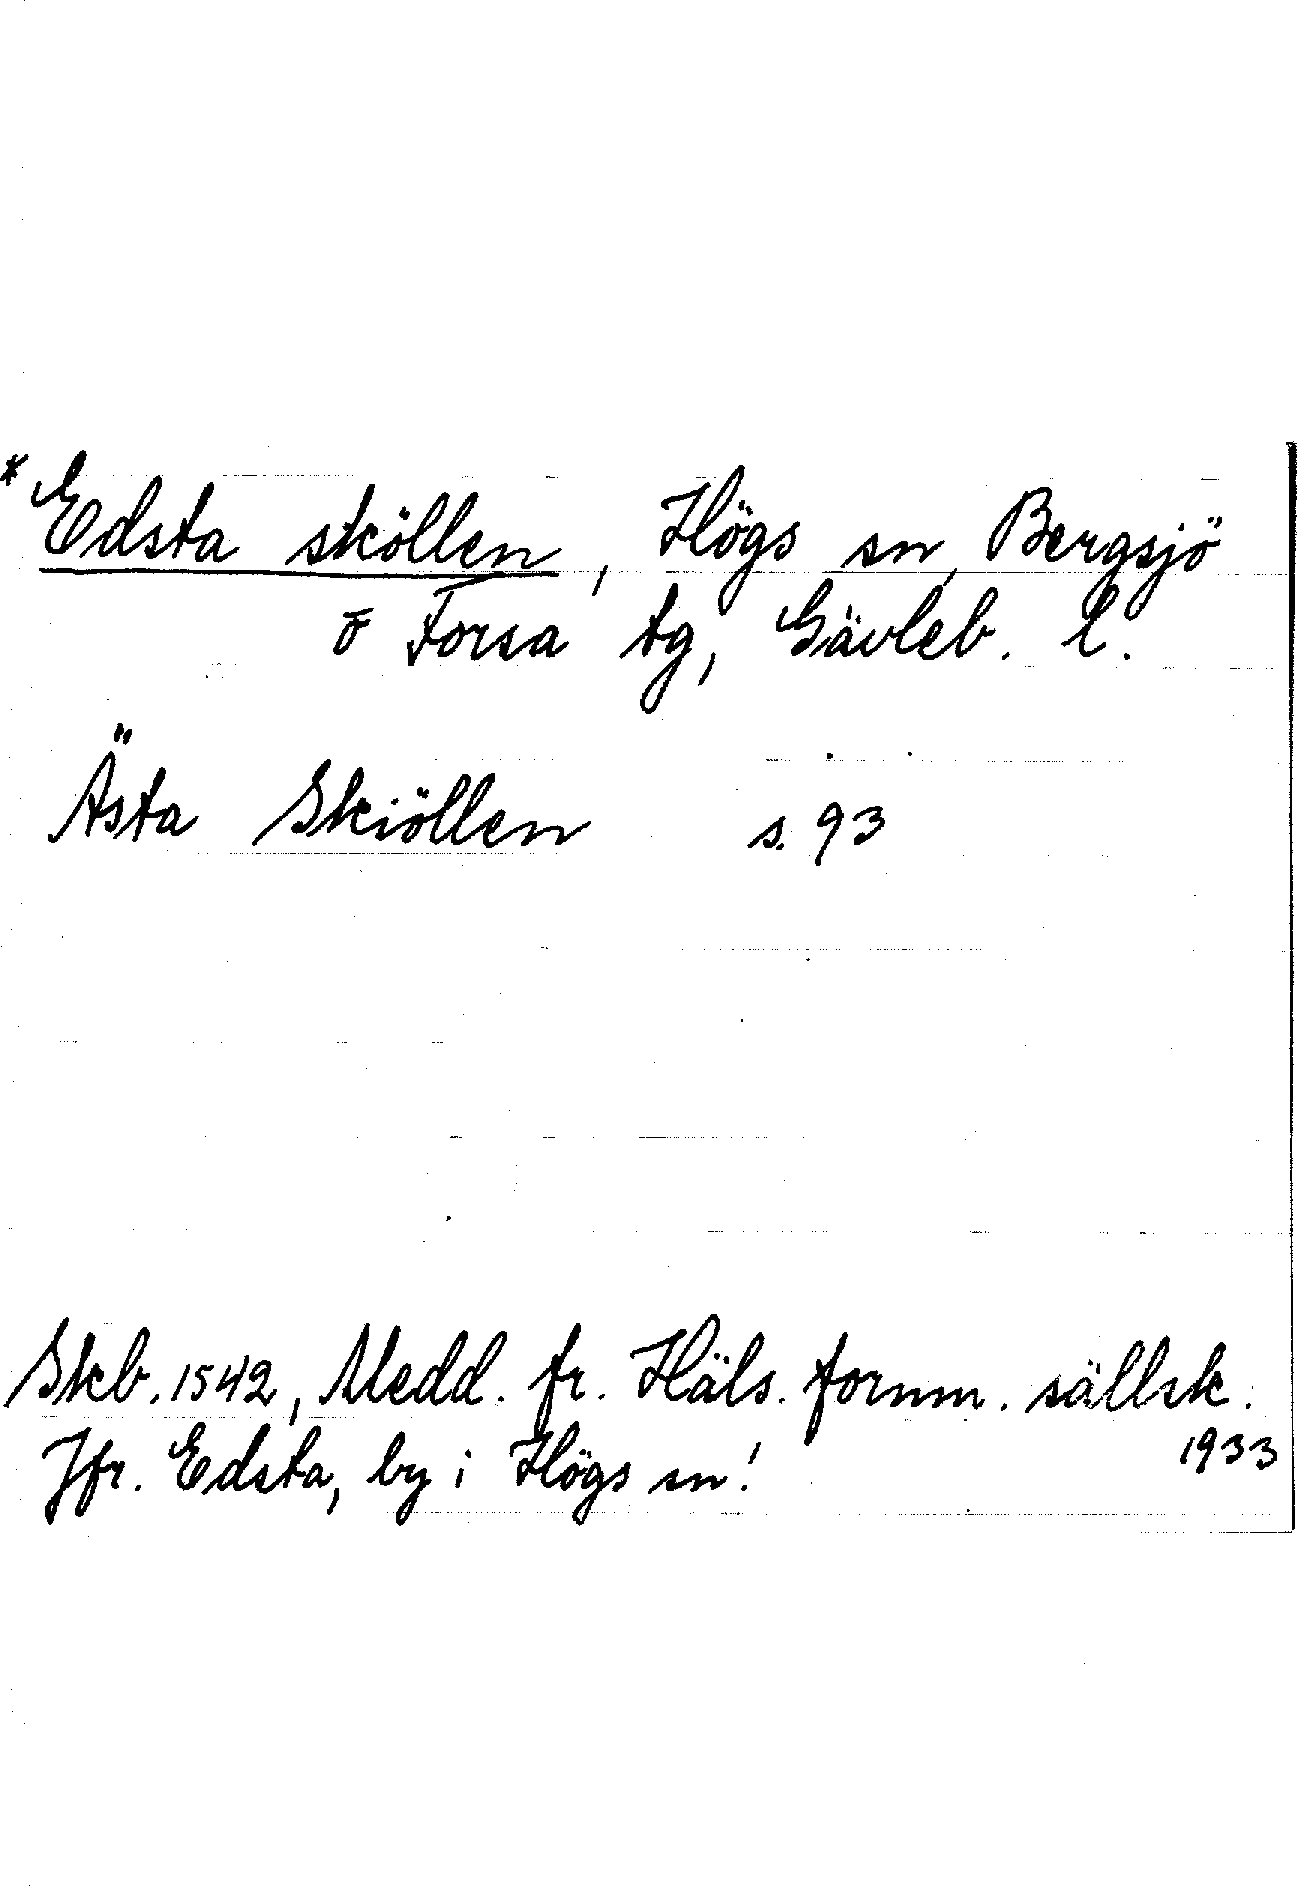 * Edsta sköllen, Högs sn, Bergsjö
o Forsa tg, Gävleb. l.
Ästa Skiöllen s. 93
Skb. 1542, Medd. fr. Häls. fornm. sällsk.
1933
Jfr. Edsta, by i Högs sn!